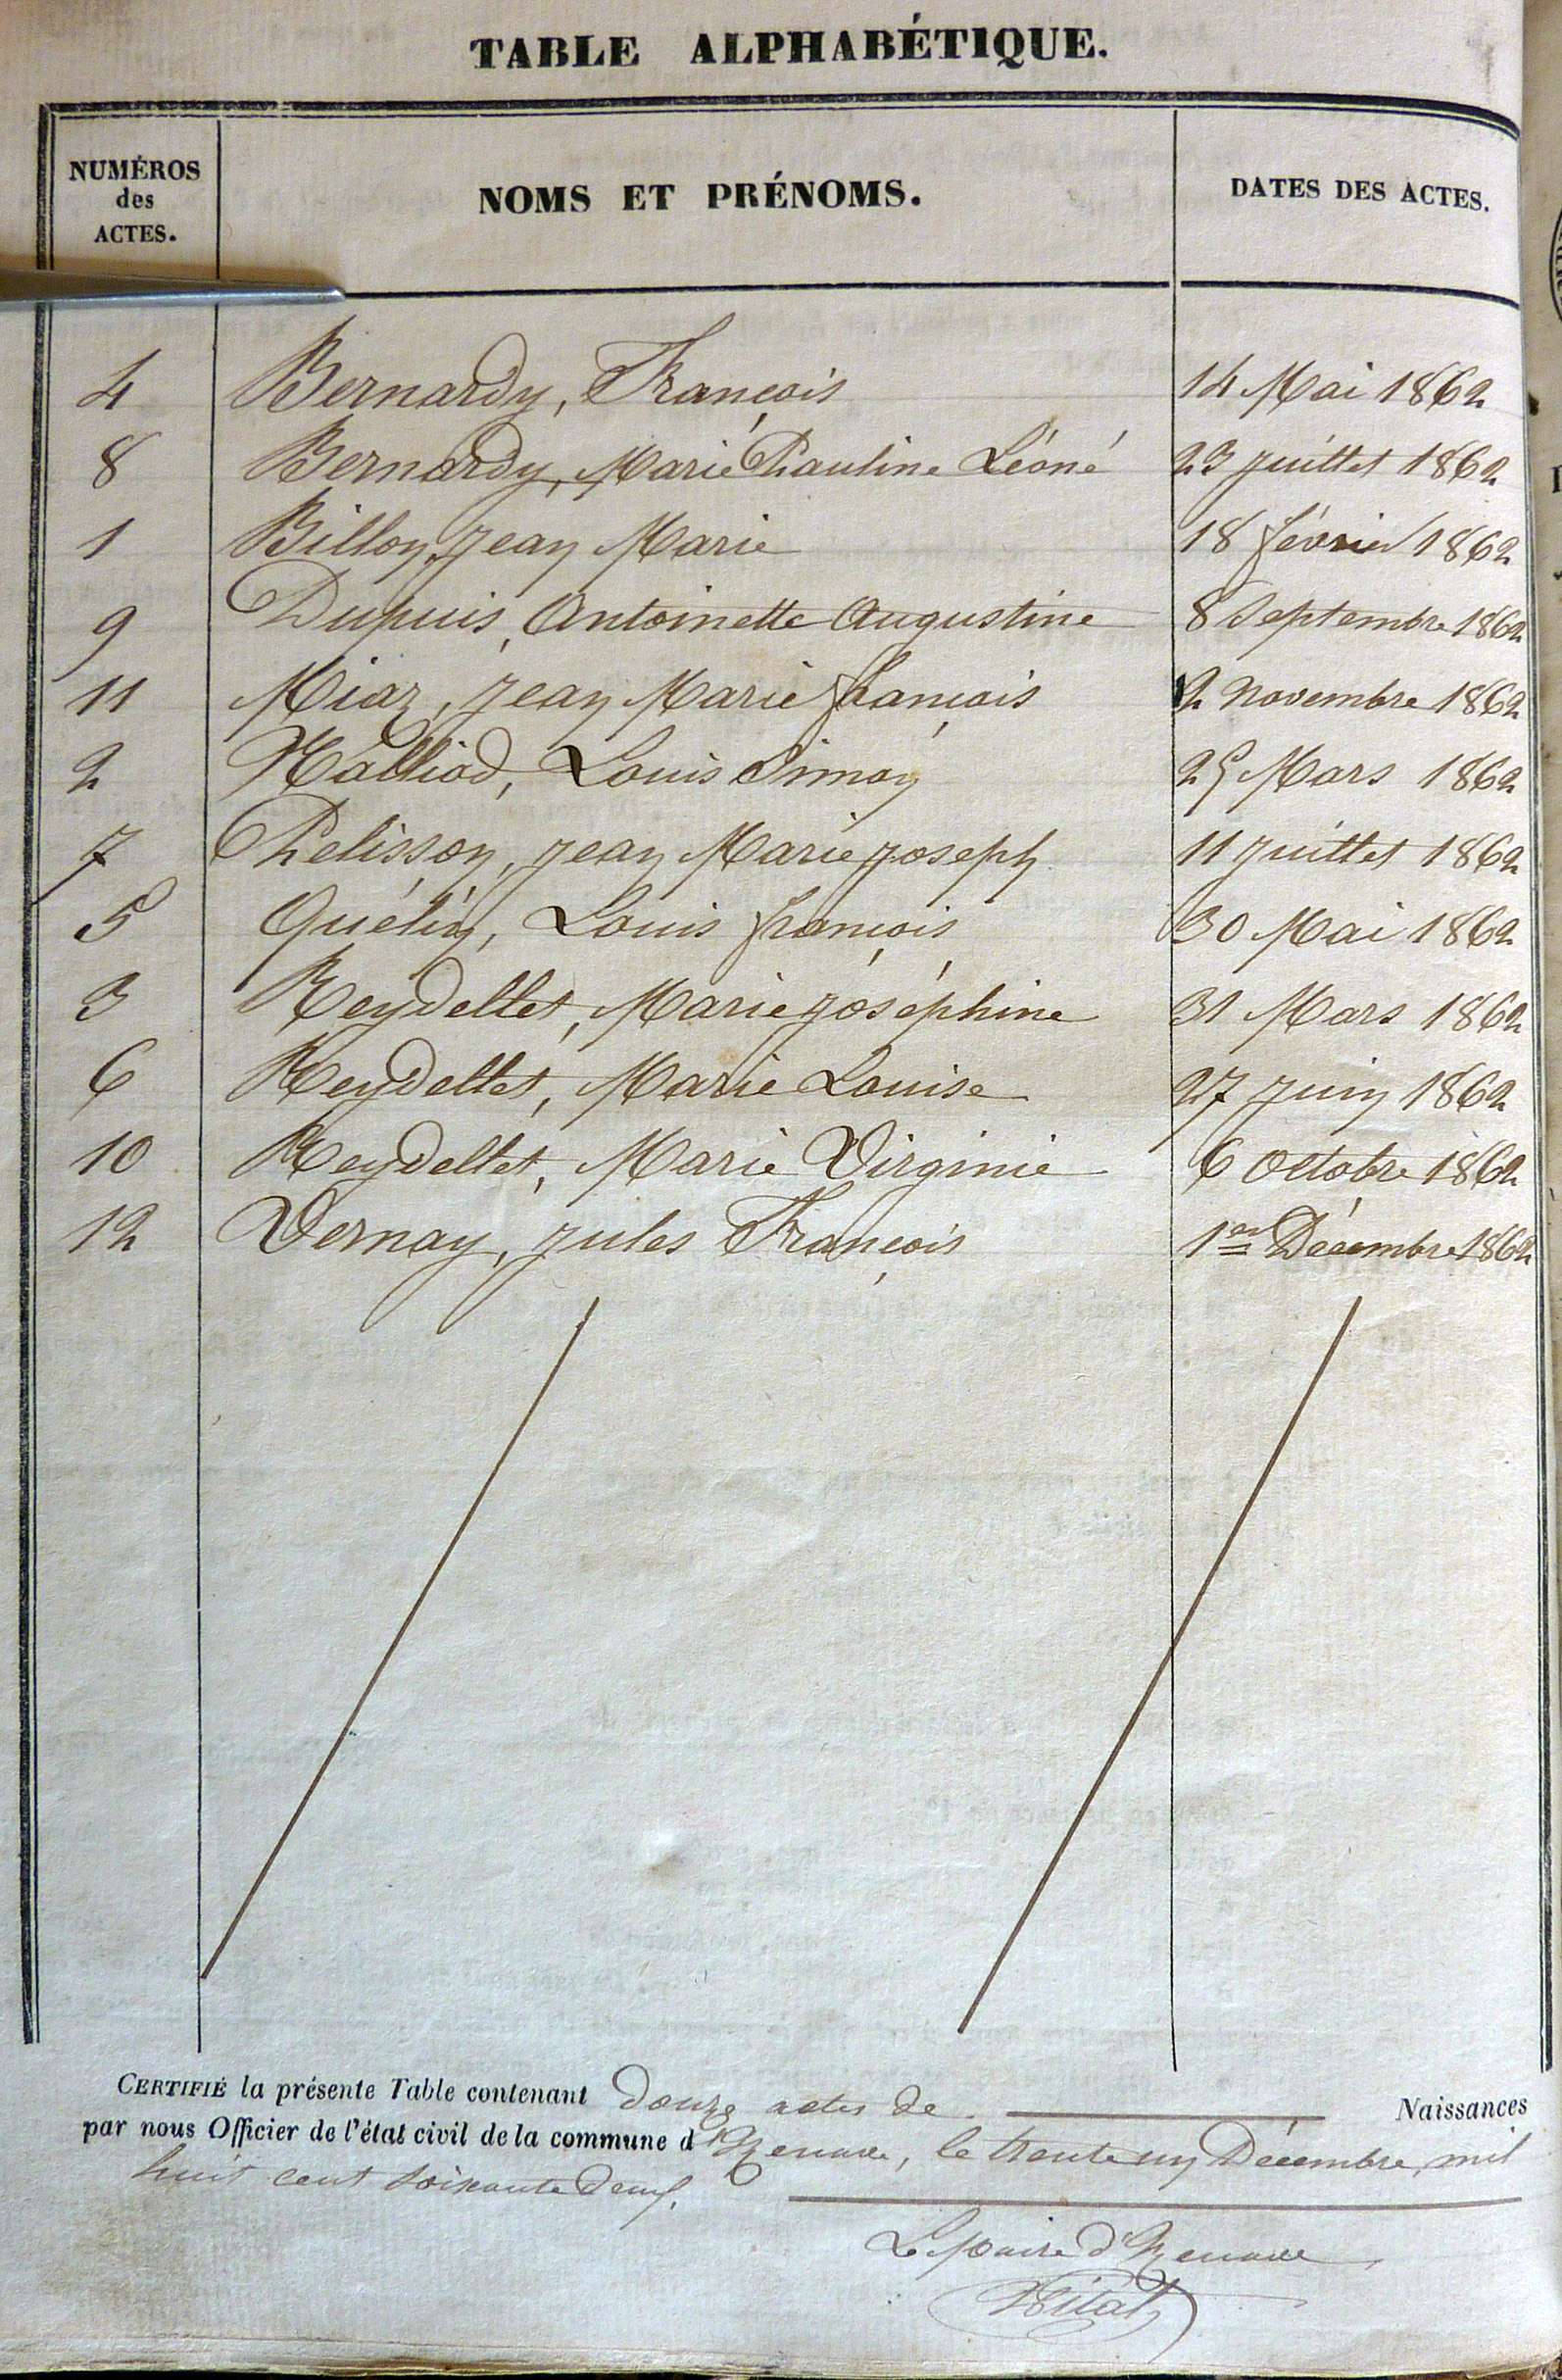 TABLE ALPHABÉTIQUE.
NUMÉROS des ACTES. NOMS ET PRÉNOMS. DATES DES ACTES.
4 Bernardy, François 14 Mai 1862
8 Bernardy, Marie Pauline Léoné 23 juillet 1862
1 Billon, Jean Marie 18 février 1862
9 Dupuis, Antoinette Augustine 8 Septembre 1862
11 Miaz, Jean Marie françois 2 Novembre 1862
2 Nalliod, Louis Simon 25 Mars 1862
7 Pelisson, Jean Marie Joseph 11 juillet 1862
5 Quélin, Louis françois 30 Mai 1862
3 Reydellet, Marie Joséphine 31 Mars 1862
6 Reydellet, Marie Louise 27 juin 1862
10 Reydellet, Marie Virginie 6 Octobre 1862
12 Vernay, Jules François 1er Décembre 1862
CERTIFIÉ la présente Table contenant Douze actes de Naissances
par nous Officier de l'état civil de la commune d'Izenave, le trente un Décembre mil
huit cent soixante deux.
Le Maire d'Izenave